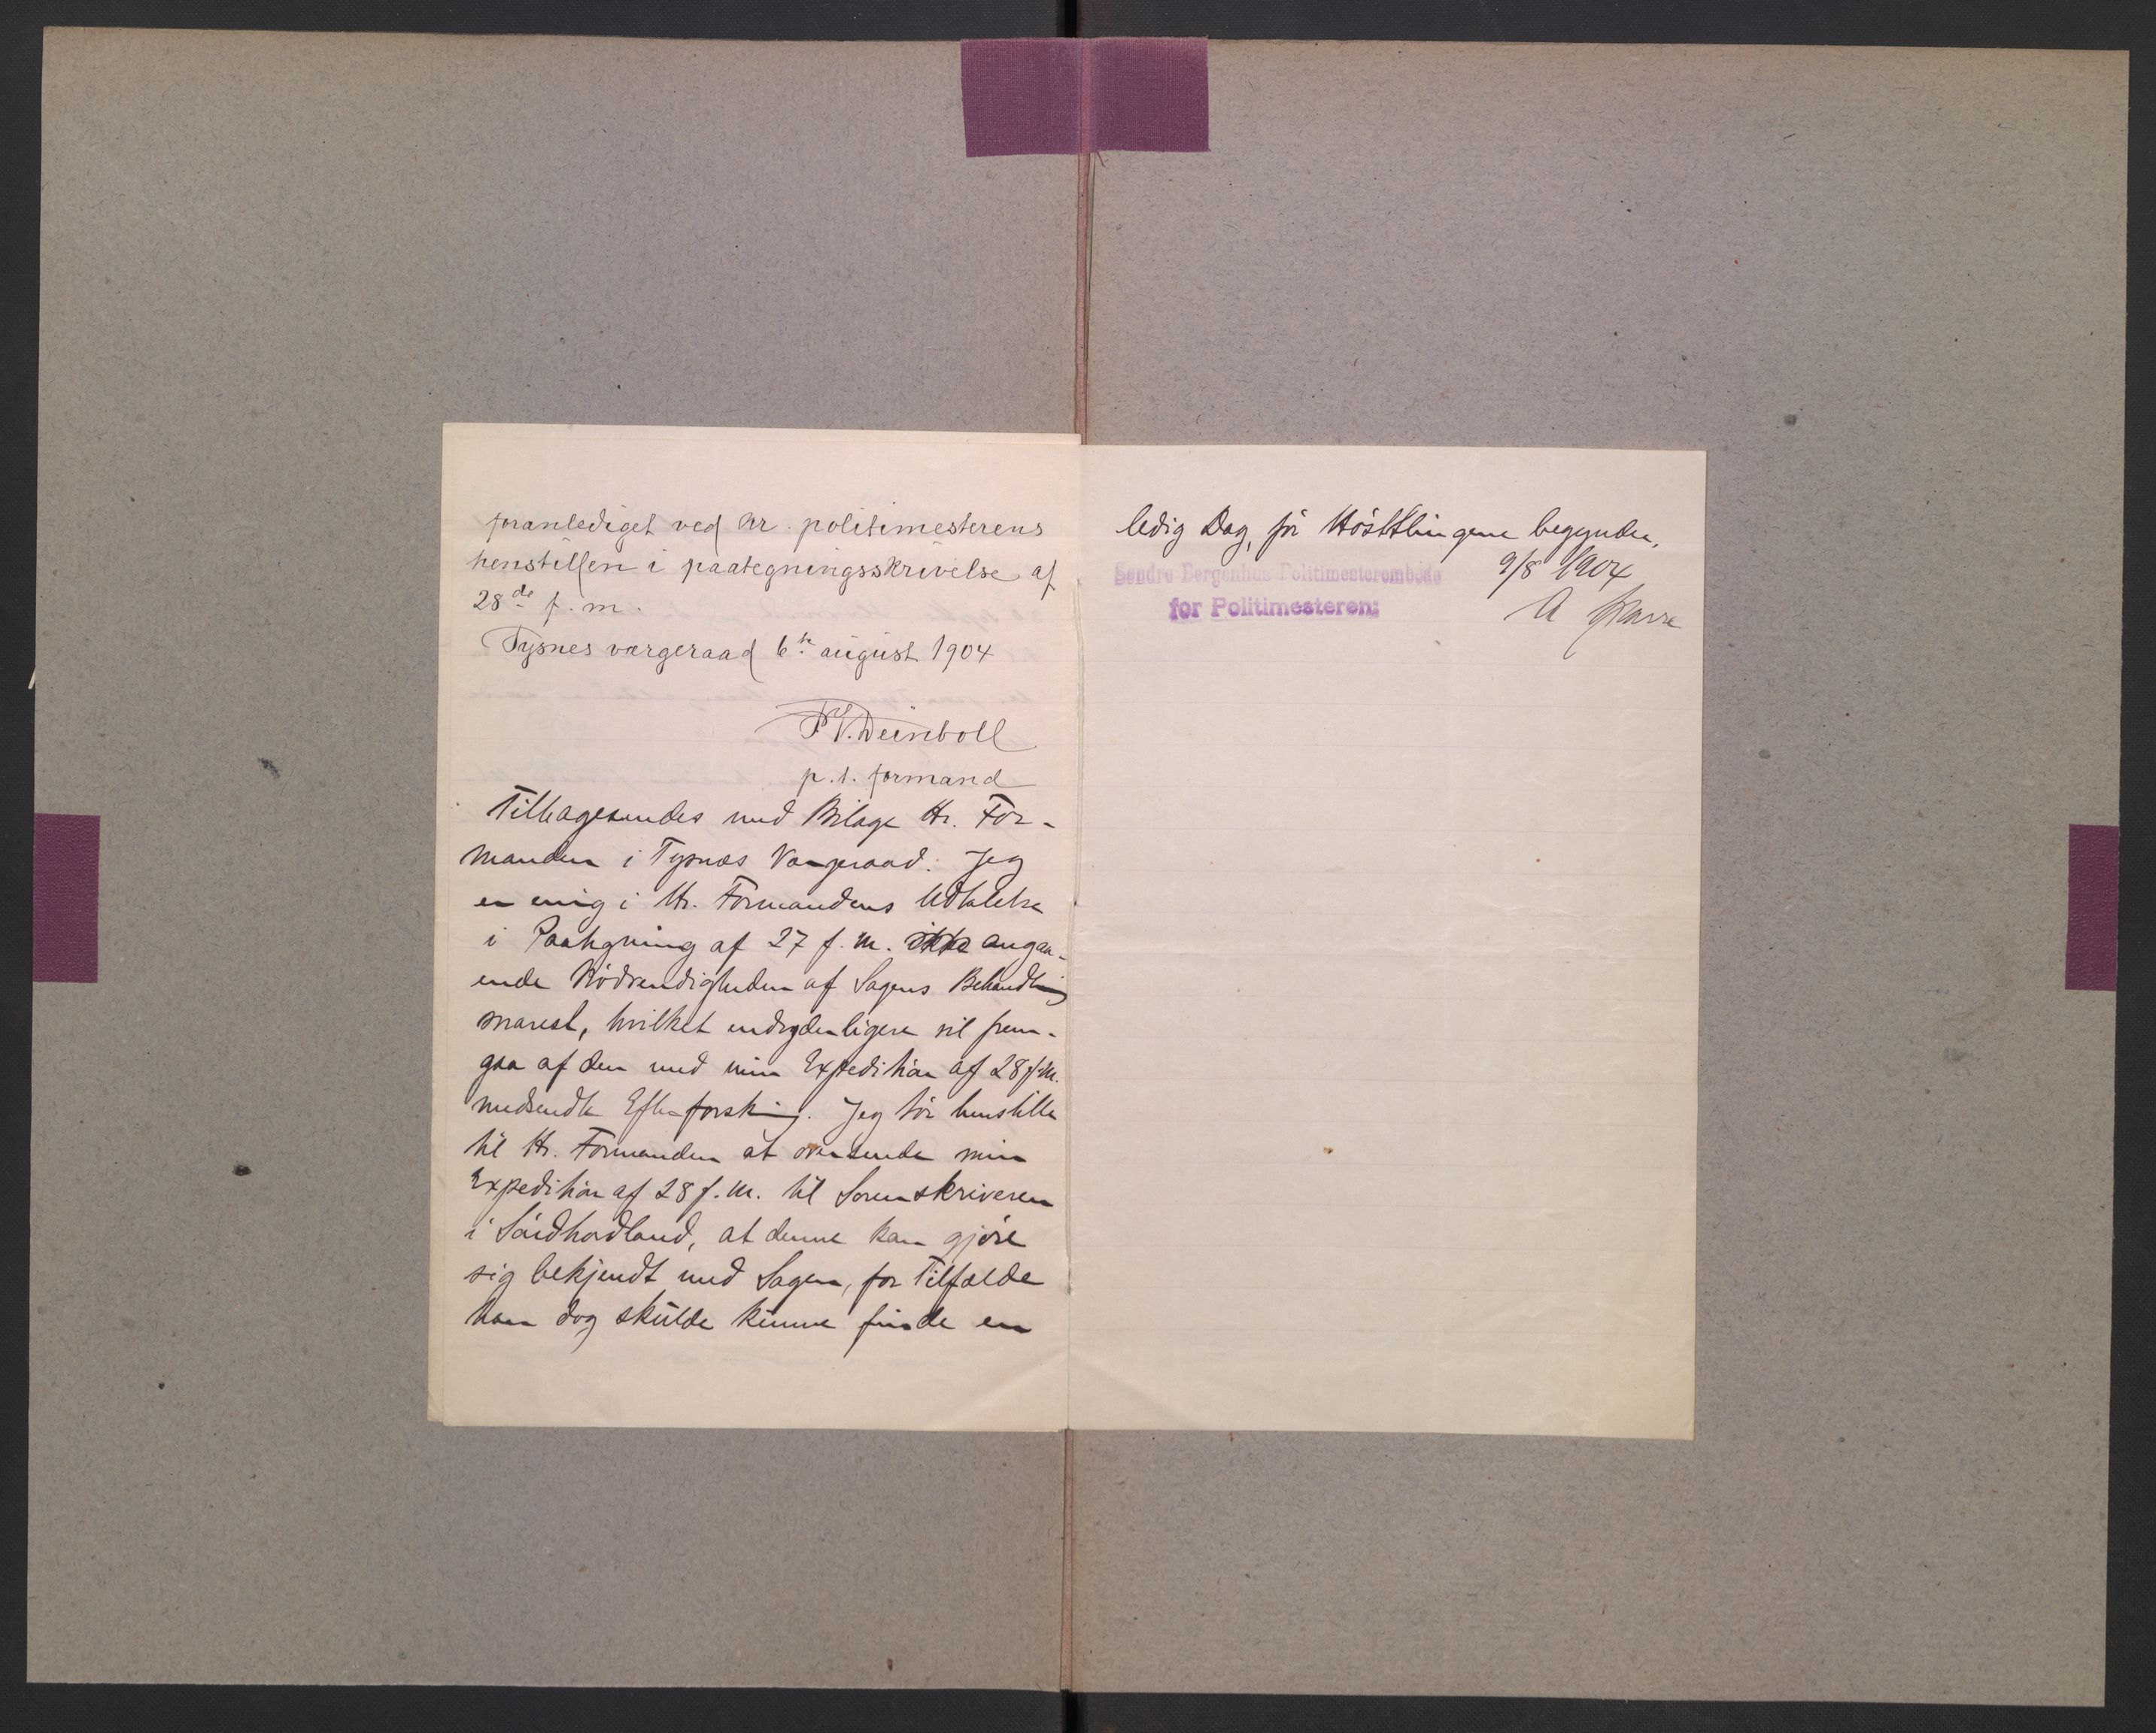 foranlediget ved hr. politimesterens
henstillen i paategningsskrivelse af
28de f. m.
Tysnes værgeraad 6te august 1904
P.V. Deinboll
p. t. formand
Tilbagesendes med Bilage Hr. For-
manden i Tysnæs Værgeraad. Jeg
er enig i Hr. Formandens Udtalelse
i Paategning af 27 f. M. angaa-
ende Nødvendigheden af Sagens Behandling
snarest, hvilket endydenligere vil frem-
gaa af den med min Expedition af 28 f. M.
medsendte Efterforskning. Jeg tör henstille
til Hr. Formanden at oversende min
Expedition af 28 f. M. til Sorenskriveren
i Söndhordland, at denne kan gjöre
sig bekjendt med Sagen, for Tilfælde
han dog skulde kunne finde en
ledig Dag, för Hösttingene begynder.
Søndre Bergenhus Politimesterembede 9/8 1904
for Politimesteren:
A